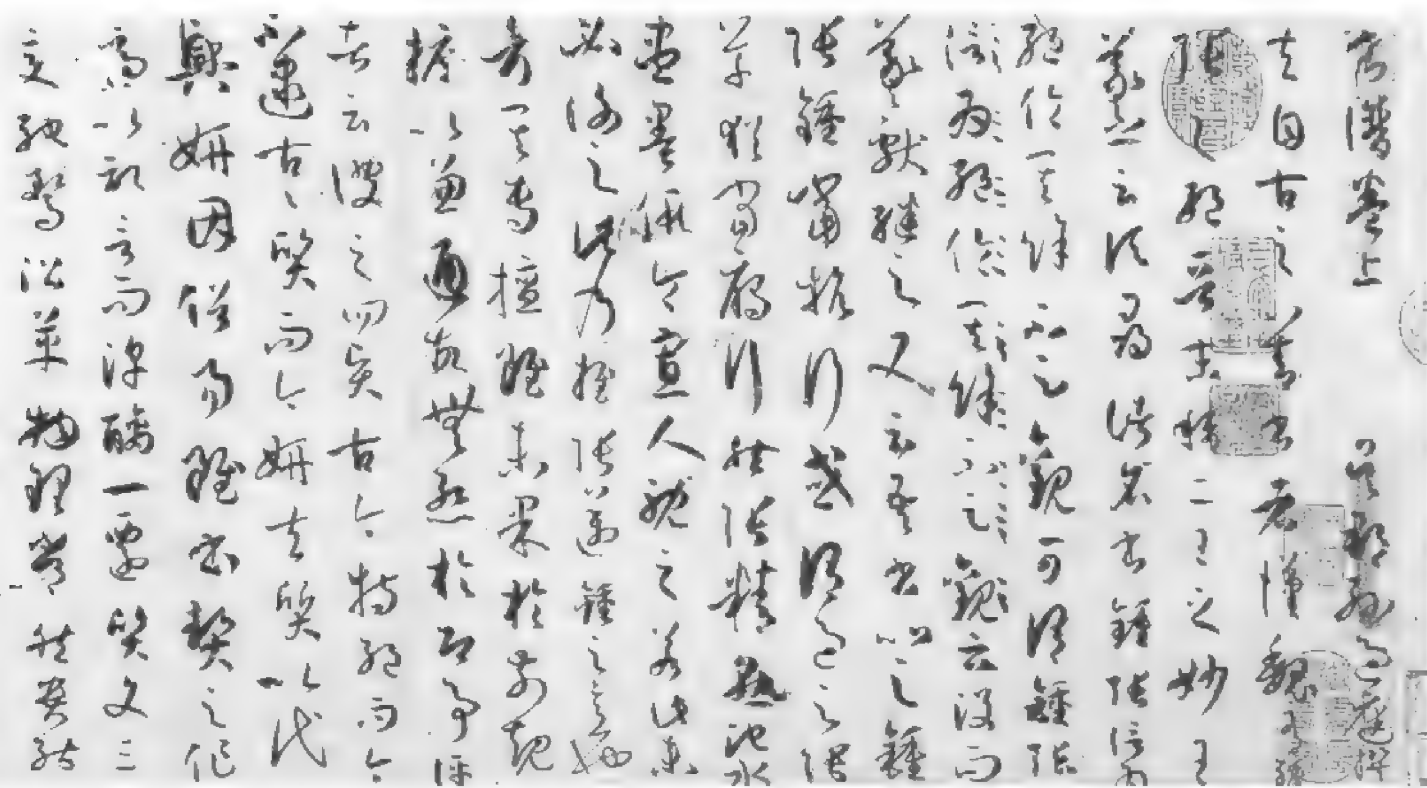 書譜卷上 吳郡孫過庭撰
夫自古之善書者漢魏有鍾
張之絕晉末稱二王之妙王
羲之云頃尋諸名書鍾張信為
絕倫其餘不足觀可謂鍾張
信為絕倫其餘不足觀云沒而
羲獻繼之又云吾書比之鍾
張鍾當抗行或謂過之張
草猶當鴈行然張精熟池水
盡墨假令寡人耽之若此未
必謝之此乃推張邁鍾之意也
考其專擅雖未果於前規
摭以兼通故無慚於即事評
者云彼之四賢古今特絕而今
不逮古古質而今妍夫質以代
興妍因俗易雖書契之作
適以記言而淳醨一遷質文三
變馳騖沿革物理常然貴能